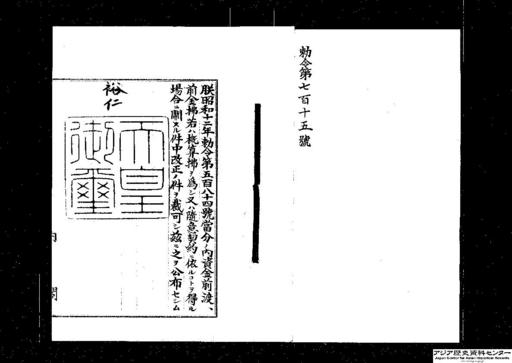 勅令第七百十五號
朕昭和十二年勅令第五百八十四號當分ノ内資金前渡、
前金拂若ハ概算拂ヲ爲シ又ハ隨意契約ニ依ルコトヲ得ル
場合ニ關スル件中改正ノ件ヲ裁可シ茲ニ之ヲ公布セシム
裕仁
天皇
御璽
内閣
アジア歴史資料センター
Japan Center for Asian Historical Records